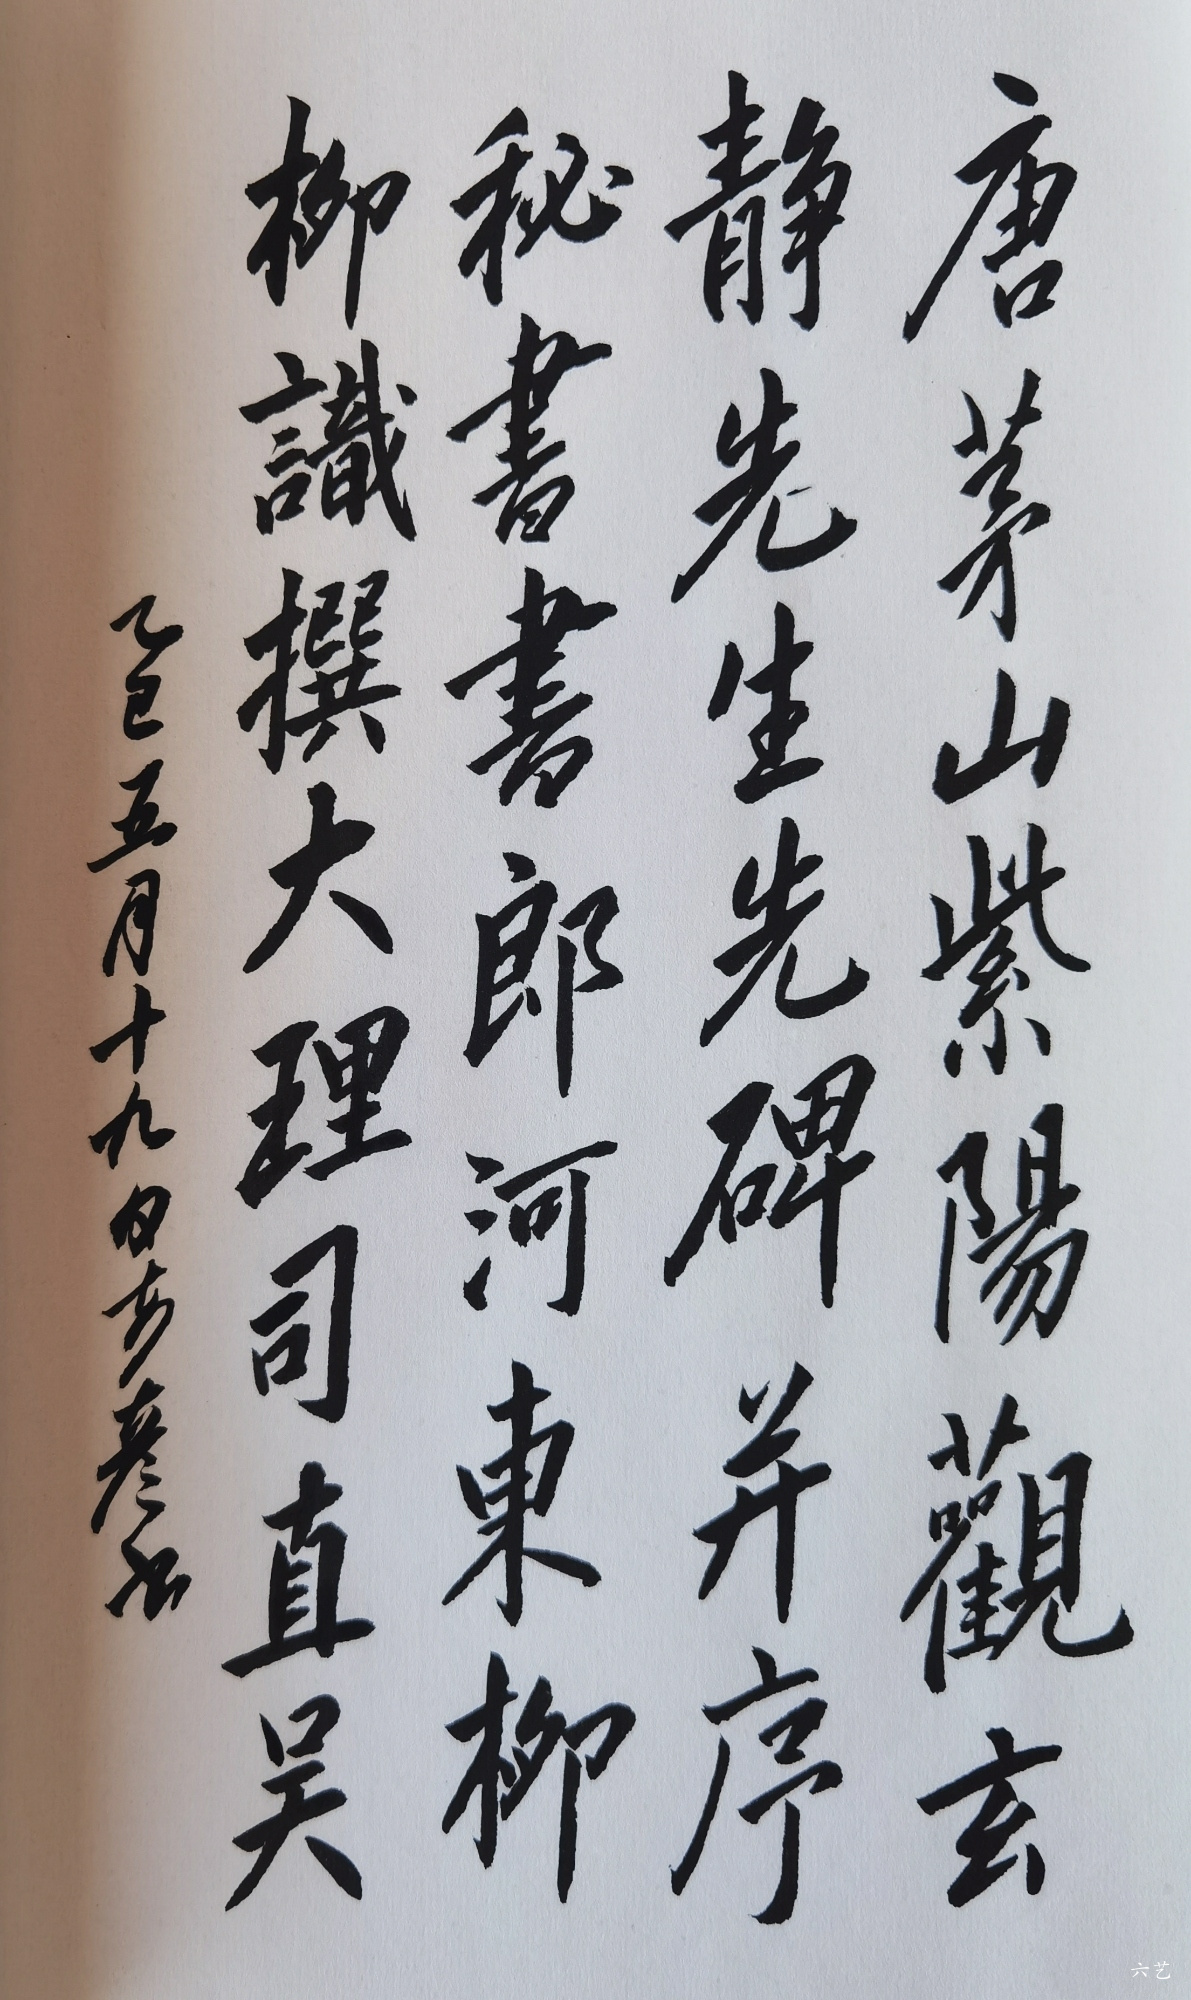 唐茅山紫陽觀玄
静先生先碑并序
秘書書郎河東柳
柳識撰大理司直吴
乙巳五月十九日彦书
六艺